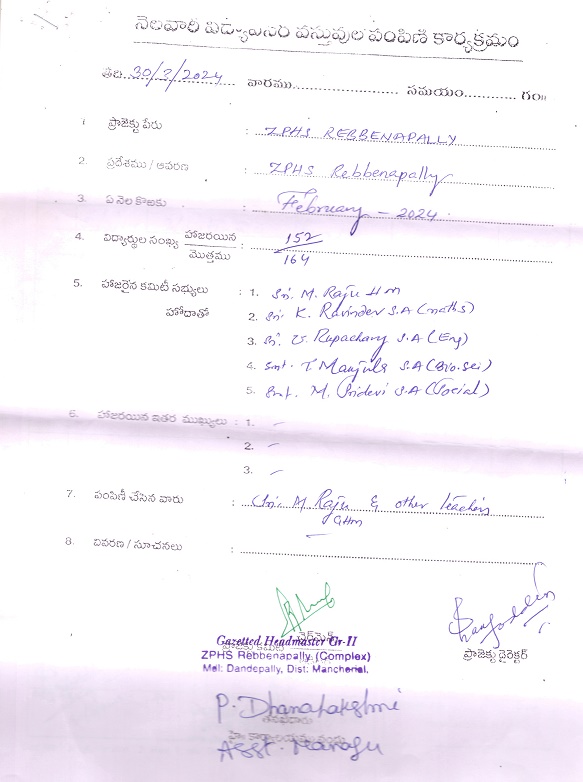 నెలవారి విద్యావనరి వస్తువుల పంపిణి కార్యక్రమం
తేది. 30/3/2024 వారము.................... సమయం............ గం॥
1 ప్రాజెక్టు పేరు : ZPHS REBBENAPALLY
2. ప్రదేశము / ఆవరణ : ZPHS Rebbenapally
3. ఏ నెల కొఱకు : February - 2024
4. విద్యార్థుల సంఖ్య హాజరయిన / మొత్తము : 152 / 164
5. హాజరైన కమిటీ సభ్యులు : 1. Sri. M. Raju HM
హోదాతో 2. Sri K. Ravinder S.A (maths)
3. Sri. V. Rupachary S.A (Eng)
4. Smt. T. Manjula S.A (Bio.Sci)
5. Smt. M. Sridevi S.A (Social)
6. హాజరయిన ఇతర ముఖ్యులు : 1. -
2. -
3. -
7. పంపిణీ చేసిన వారు : Sri. M Raju & other teachers
GHM
8. వివరణ / సూచనలు :
Gazetted Headmaster Gr-II
ZPHS Rebbenapally. (Complex)
Mdl: Dandepally, Dist: Mancherial.
ప్రాజెక్టు డైరెక్టర్
P. Dhanalakshmi
Asst. Manager